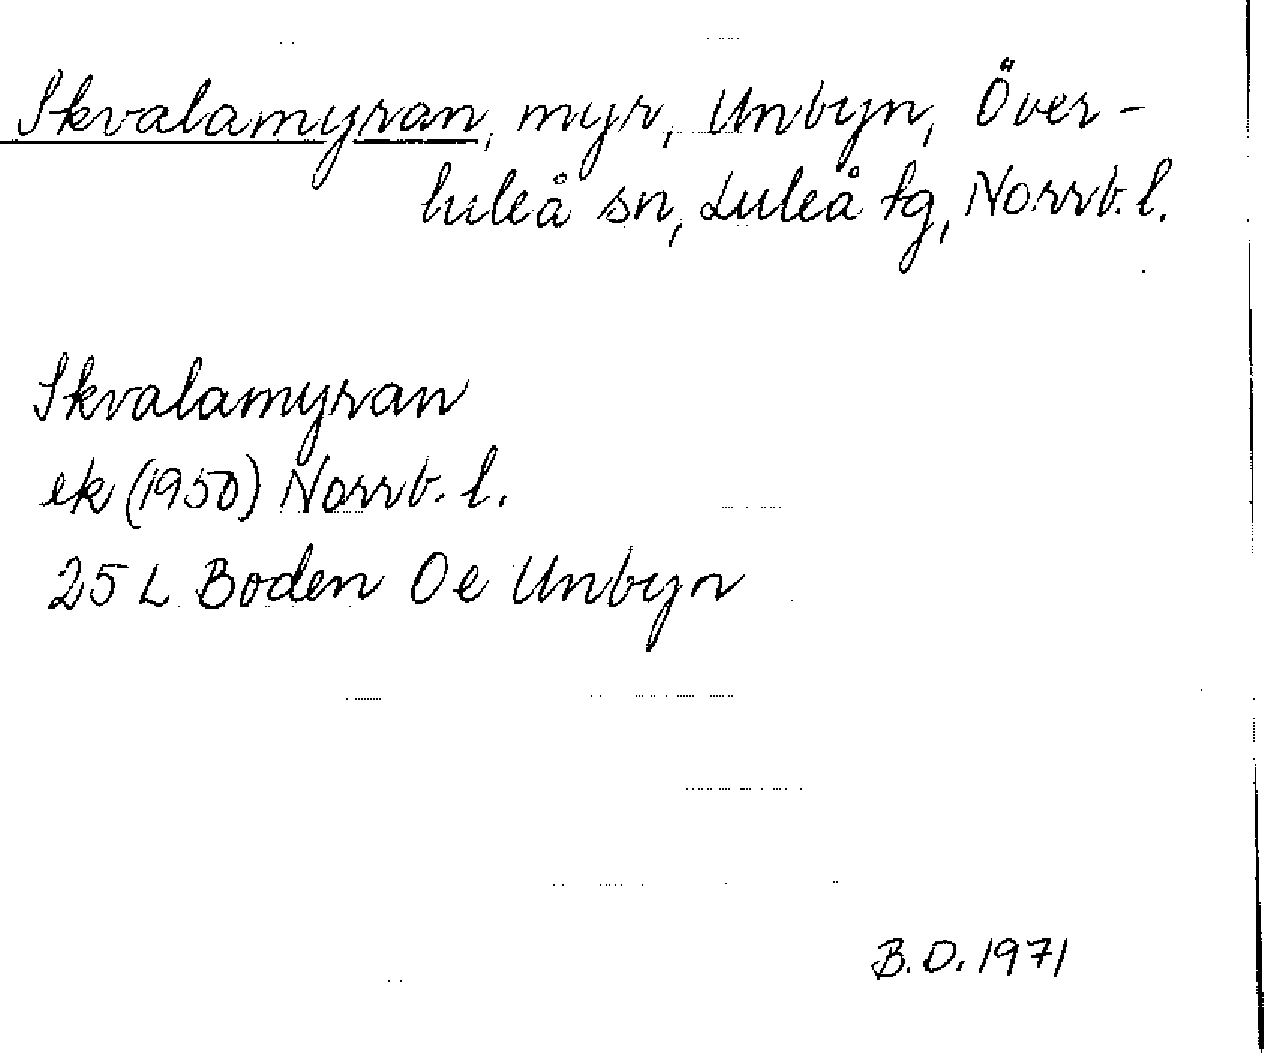 Skvalamyran, myr, Unbyn, Över-
luleå sn, Luleå tg, Norrb. l.
Skvalamyran
ek (1950) Norrb. l.
25 L Boden Oe Unbyn
B.D. 1971